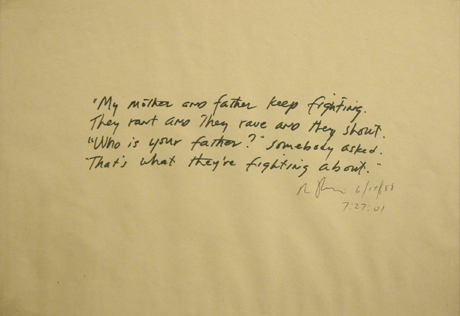 "My mother and father keep fighting.
They rant and They rave and they shout.
"Who is your father?" somebody asked.
That's what they're fighting about."
7:27:01